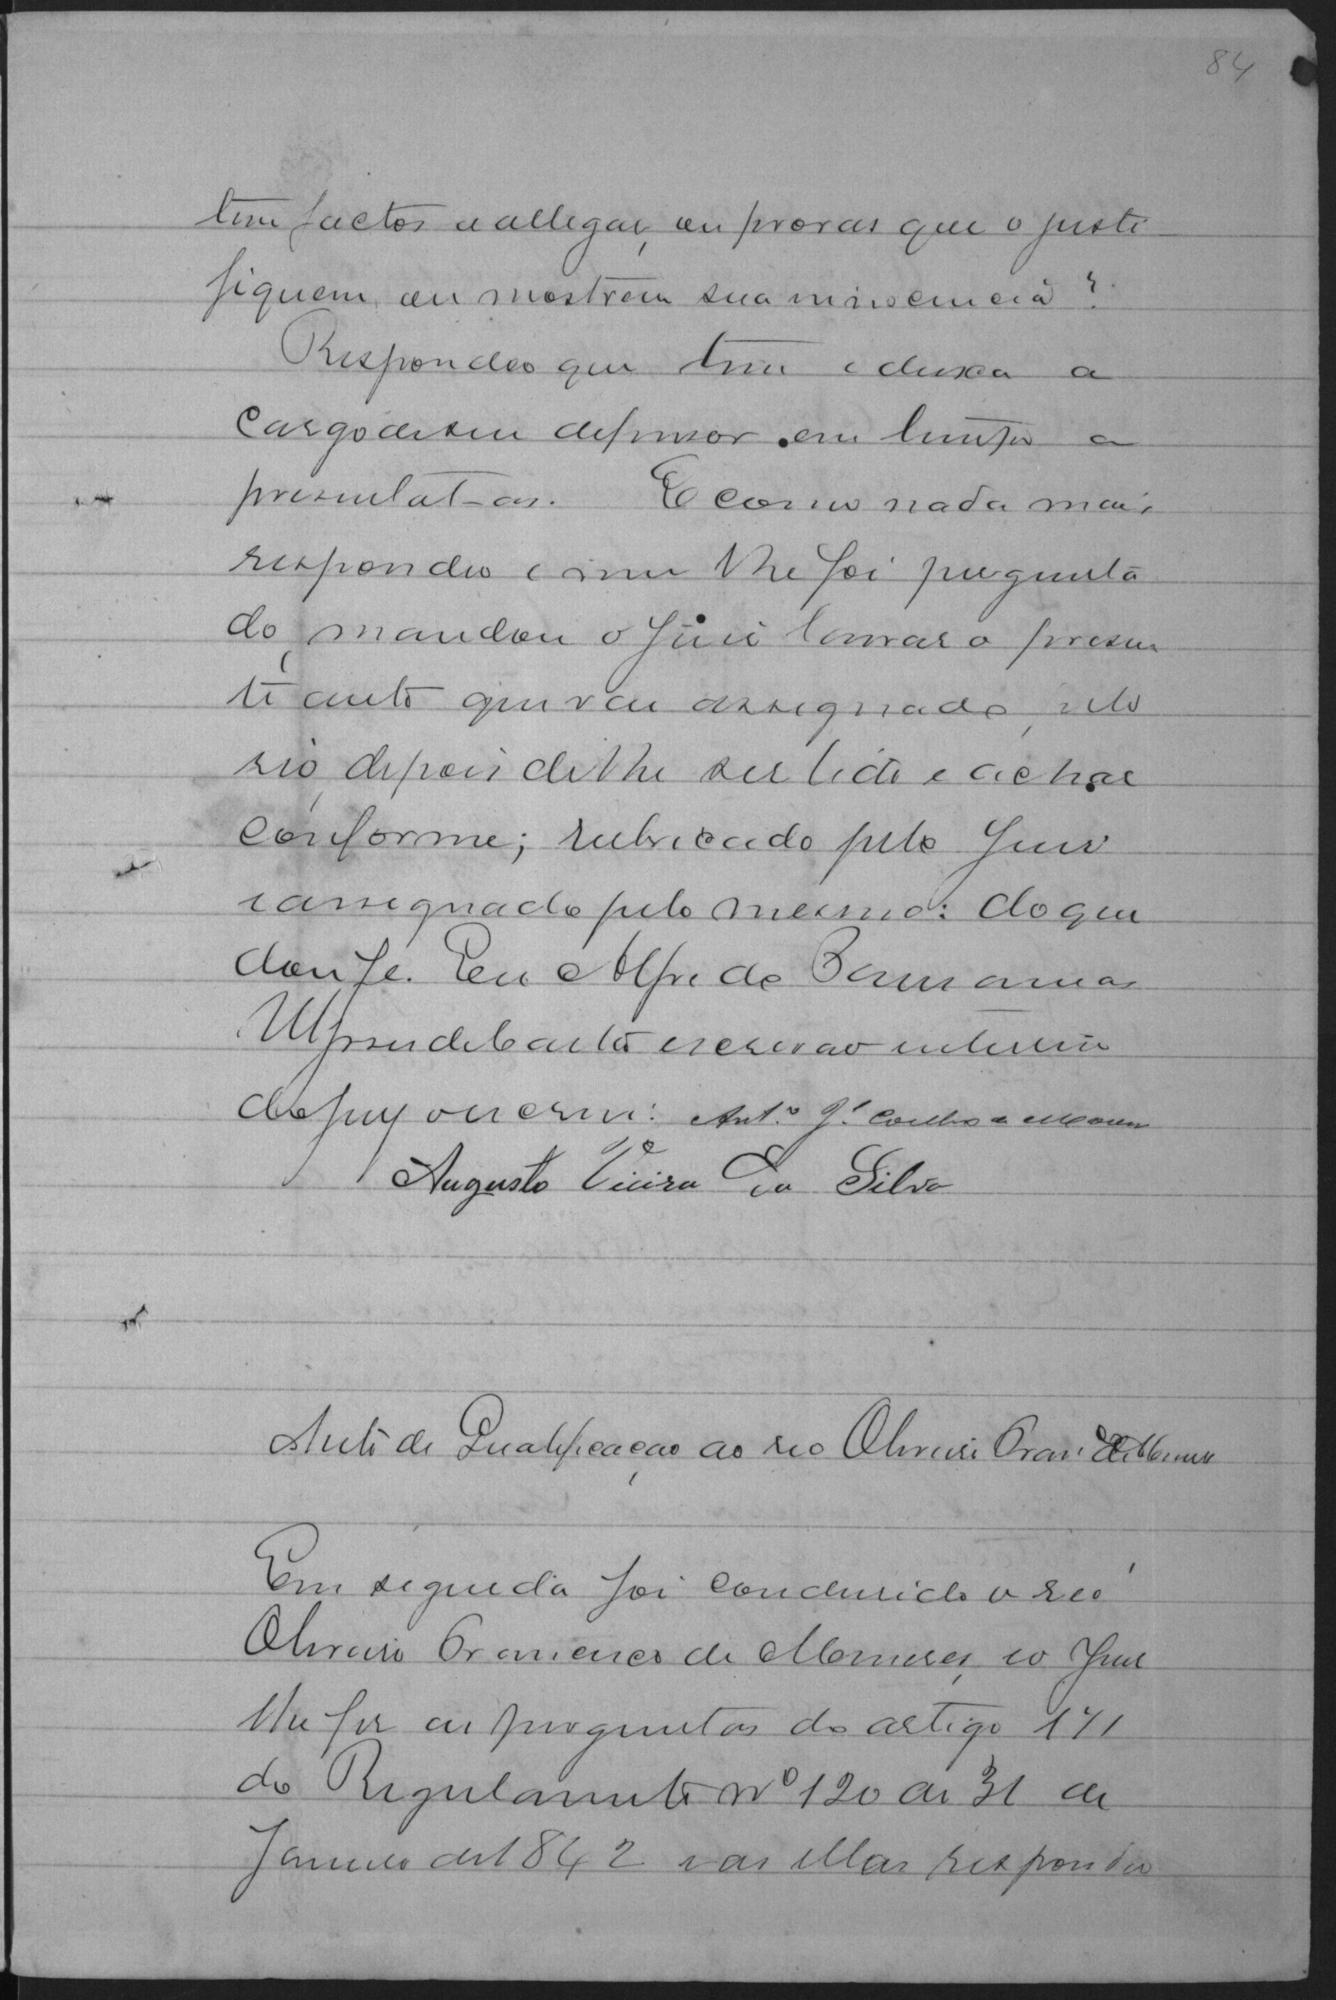 84
tem factos a allegar, ou provas que o justi
fiquem ou mostrem sua innocencia?
Respondeo que tem e deixa a
cargo de seu defensor em tempo a
presental-as. E como nada mais
respondeo e nem lhe foi pergunta
do, mandou o Juiz lavrar o presen
te auto que vai assignado pelo
réo, depois de lhe ser lido e achar
conforme; rubricado pelo Juiz
e assignado pelo mesmo: do que
dou fé. Eu Alfredo
escrivão interino
do jury o escrevi: Ant.º J.é Coelho de
Augusto Vieira da Silva
Auto de Qualificação ao reo Oliveiro Fran.co de Menezes
Em seguida foi condusido o reó
Oliveiro Francisco de Menezes, e o Juiz
lhe fez as perguntas do artigo 171
do Regulamento Nº 120 de 31 de
Janeiro de 1842 e as ellas respondeo